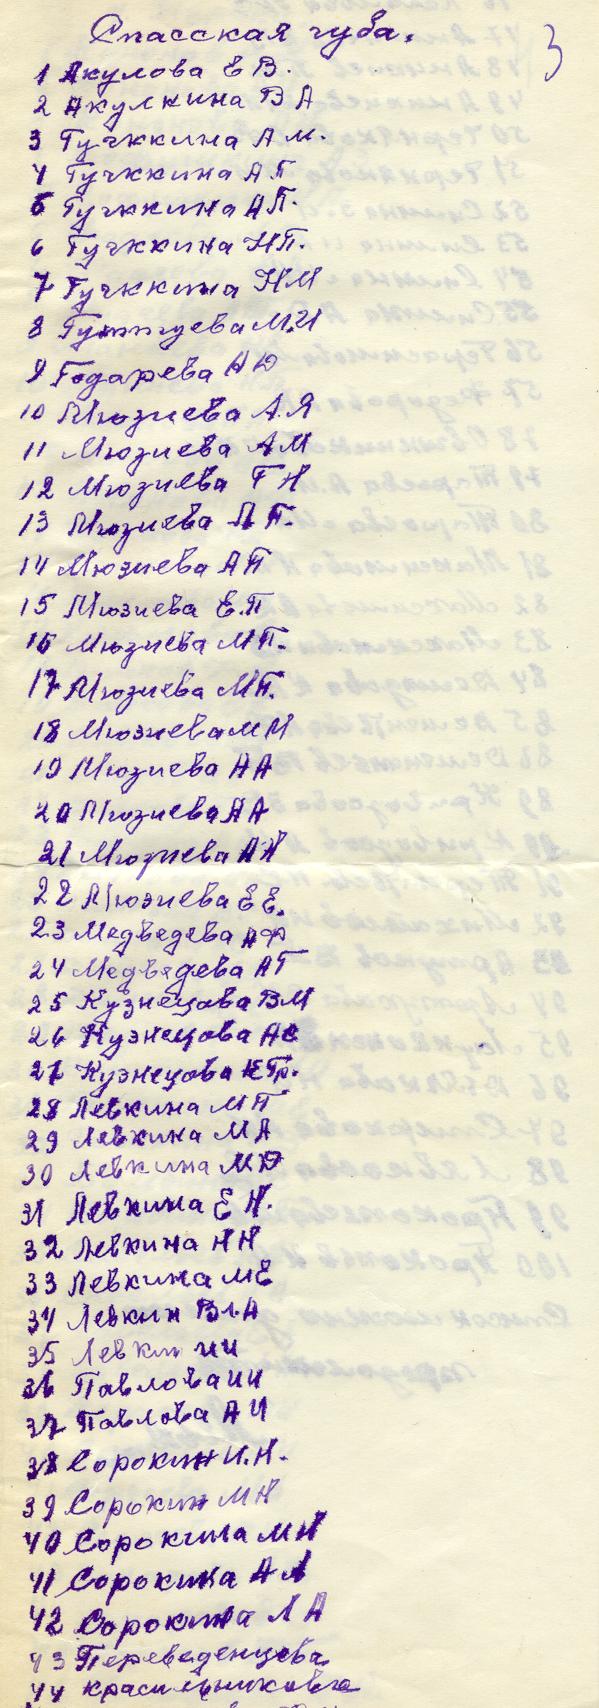 Спасская губа.
3
1 Акулова Е В.
2 Акулкина В А
3 Гучккина А М.
4 Гучккина А Г
5 Гучккина А П.
6 Гучккина Н П.
7 Гучккина Н М
8 М.И
9 Годарева А Ю
10 Мюзиева А. Я
11 Мюзиева А М
12 Мюзиева Г Н
13 Мюзиева Л П.
14 Мюзиева А П
15 Мюзиева Е. П
16 Мюзиева М П.
17 Мюзиева М П.
18 Мюзиева М М
19 Мюзиева А А
20 Мюзиева А А
21 Мюзиева А Н
22 Мюзиева Е Е.
23 Медведева А Ф
24 Медведева А Г
25 Кузнецова В М
26 Кузнецова А С
27 Кузнецова Е Гр.
28 Левкина М П
29 Левкина М А
30 Левкина М Ю
31 Левкина Е Н.
32 Левкина Н Н
33 Левкина М Е
34 Левкин Вл А
35 Левкин И И
36 Павлова И И
37 Павлова А И
38 Сорокин И. Н.
39 Сорокин М Н
40 Сорокина М Н
41 Сорокина А Л
42 Сорокина Л А
43 Переведенцева
44 Красильникова